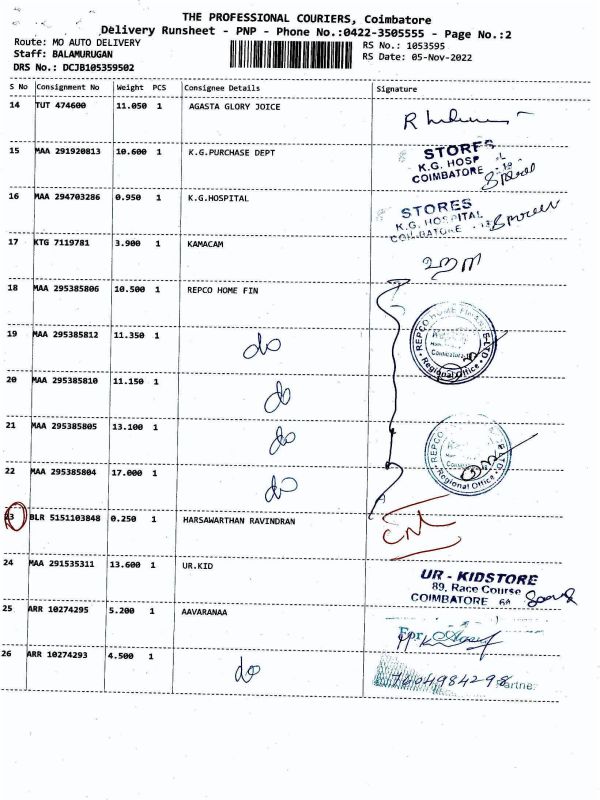 THE PROFESSIONAL COURIERS, Coimbatore
Delivery Runsheet - PNP - Phone No.:0422-3505555 - Page No.:2
Route: MO AUTO DELIVERY
RS No.: 1053595
Staff: BALAMURUGAN
RS Date: 05-Nov-2022
DRS No.: DCJB105359502
S No Consignment No Weight PCS Consignee Details Signature
14 TUT 474600 11.050 1 AGASTA GLORY JOICE
15 MAA 291920813 10.600 1 K.G.PURCHASE DEPT
STORES
K.G. HOSP
COIMBATORE
16 MAA 294703286 0.950 1 K.G.HOSPITAL
STORES
K.G. HOSPITAL
COIMBATORE
17 KTG 7119781 3.900 1 KAMACAM
18 MAA 295385806 10.500 1 REPCO HOME FIN
REPCO HOME
Regional Office
19 MAA 295385812 11.350 1 do
20 MAA 295385810 11.150 1 do
21 MAA 295385805 13.100 1 do
REPCO
Regional Office
22 MAA 295385804 17.000 1 do
23 BLR 5151103848 0.250 1 HARSAWARTHAN RAVINDRAN
24 MAA 291535311 13.600 1 UR.KID
UR - KIDSTORE
89, Race Course
COIMBATORE
25 ARR 10274295 5.200 1 AAVARANAA
For
26 ARR 10274293 4.500 1 do
7604984298